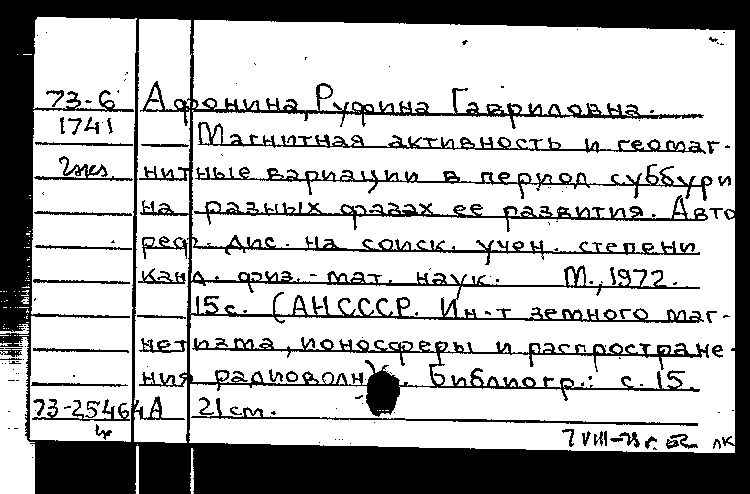 73-6 Афонина, Руфина Гавриловна.
1741 Магнитная активность и геомаг-
2экз нитные вариации в период суббури
на разных фазах ее развития. Авто
реф. дис. на соиск. учен. степени
канд. физ.-мат. наук. М., 1972.
15 с. (АН СССР. Ин-т земного маг-
нетизма, ионосферы и распростране-
ния радиоволн). Библиогр.: с. 15.
73-25464 А 21 см.
7 VIII-73 г. ЛК